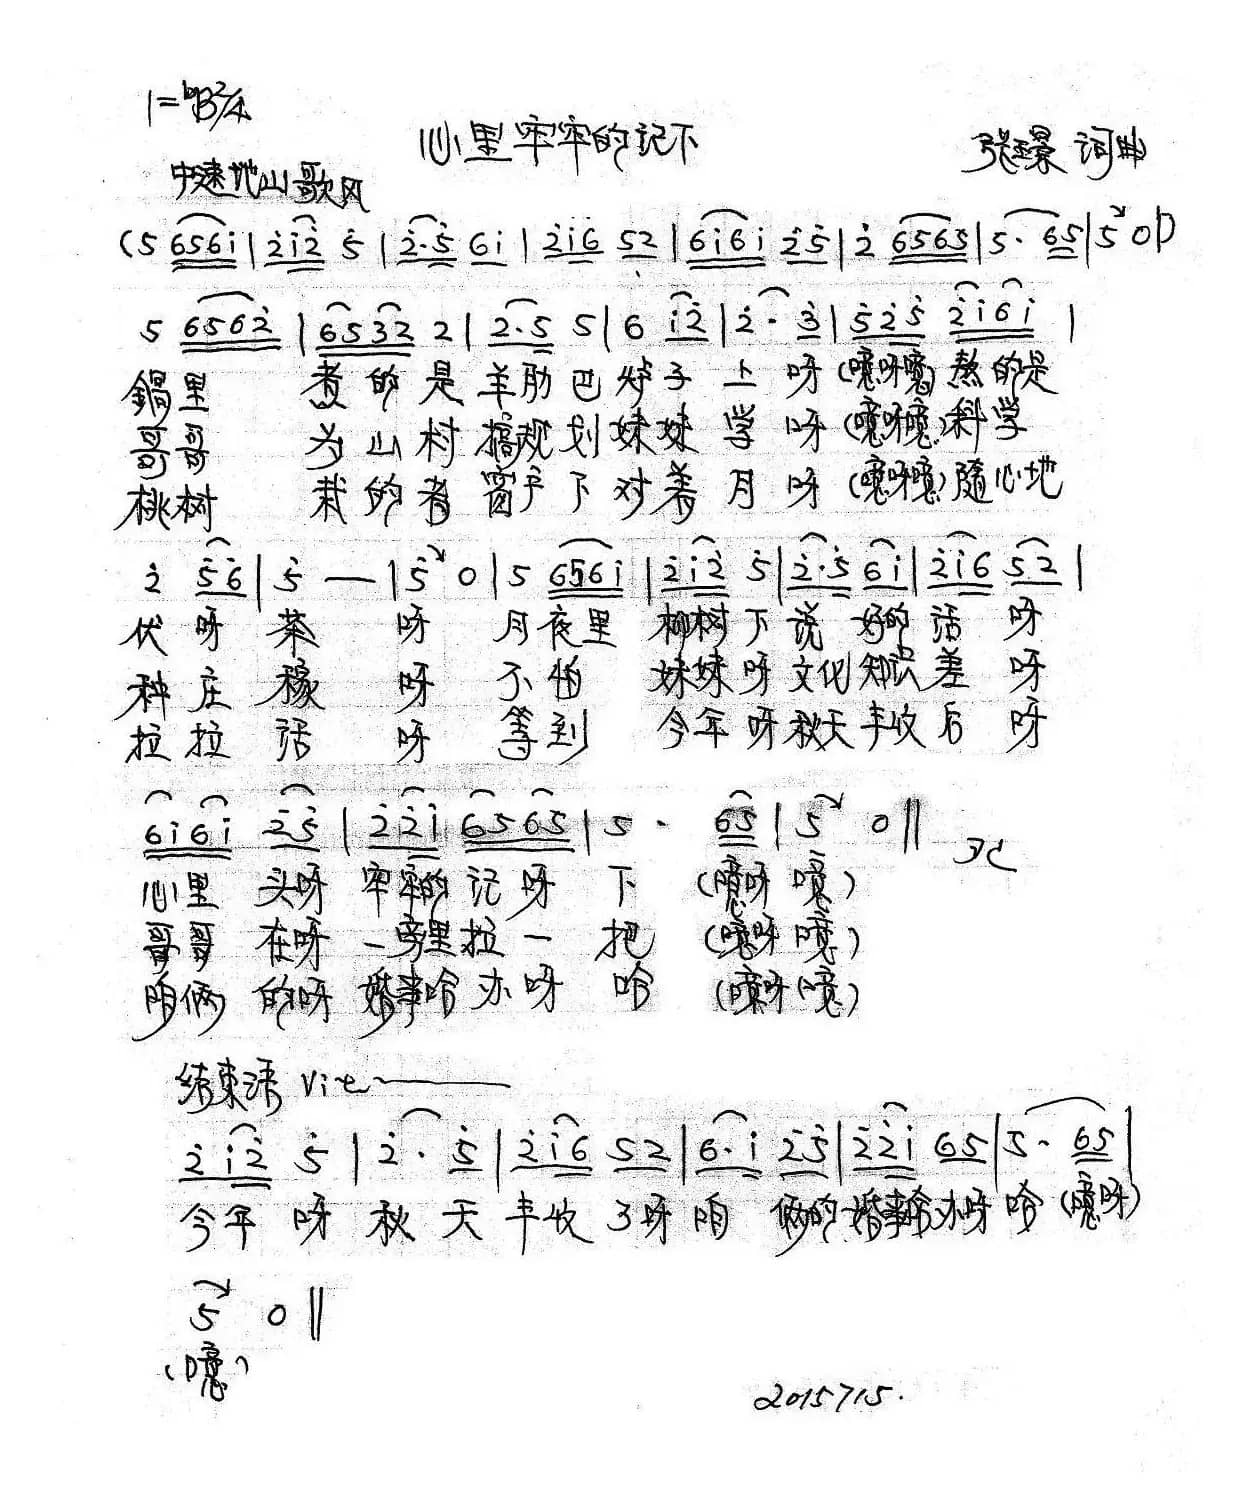 1=♭B 2/4
心里牢牢的记下
张璟 词曲
中速地山歌风
(5 656i|2i2 5|2·5 6i|2i6 52|6i6i 25|2 6565|5· 65|5 0|)
5 6562|6532 2|2·5 5|6 i2|2· 3|525 2i6i|
鍋里 煮的是羊肋巴炉子上呀(噫呀噫)熬的是
哥哥 为山村搞规划妹妹学呀(噫呀噫)科学
桃树 栽的者窗户下对着月呀(噫呀噫)随心地
2 56|5 —|5 0|5 6561|2i2 5|2·5 6i|2i6 52|
伏呀茶呀月夜里柳树下说好的话呀
种庄稼呀不怕妹妹呀文化知识差呀
拉拉话呀等到今年呀秋天丰收后呀
6i6i 25|22i 6565|5· 65|5 0‖
心里头呀牢牢的记呀下(噫呀噫)
哥哥在呀一旁里拉一把(噫呀噫)
咱俩的呀婚事哈办呀哈(噫呀噫)
结束语
2i2 5|2· 5|2i6 52|6·i 25|22i 65|5· 65|
今年呀秋天丰收了呀咱俩的婚事哈办呀哈(噫呀)
5 0‖
(噫)
2015715.